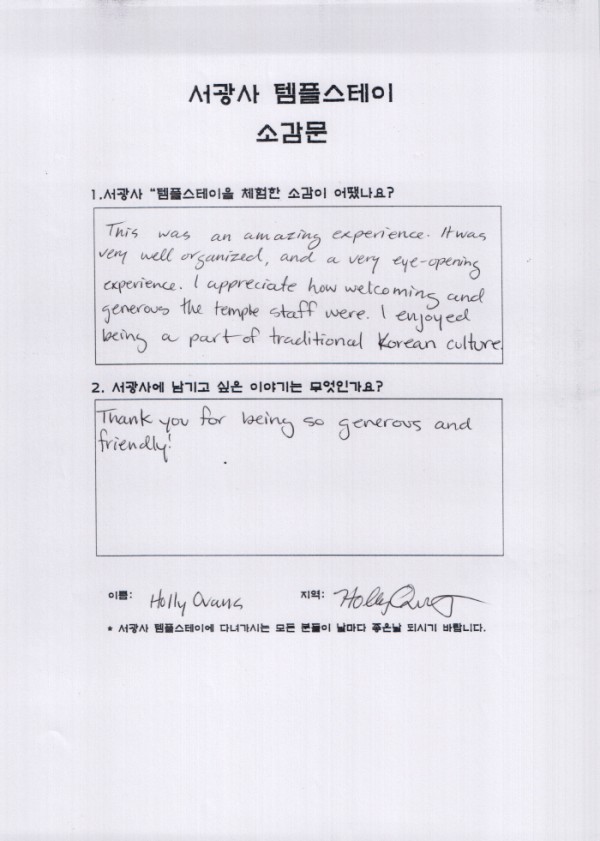 서광사 템플스테이
소감문
1.서광사 "템플스테이을 체험한 소감이 어땠나요?
This was an amazing experience. It was
very well organized, and a very eye-opening
experience. I appreciate how welcoming and
generous the temple staff were. I enjoyed
being a part of traditional Korean culture
2. 서광사에 남기고 싶은 이야기는 무엇인가요?
Thank you for being so generous and
friendly!
이름: Holly 지역: Holly
* 서광사 템플스테이에 다녀가시는 모든 분들이 날마다 좋은날 되시기 바랍니다.